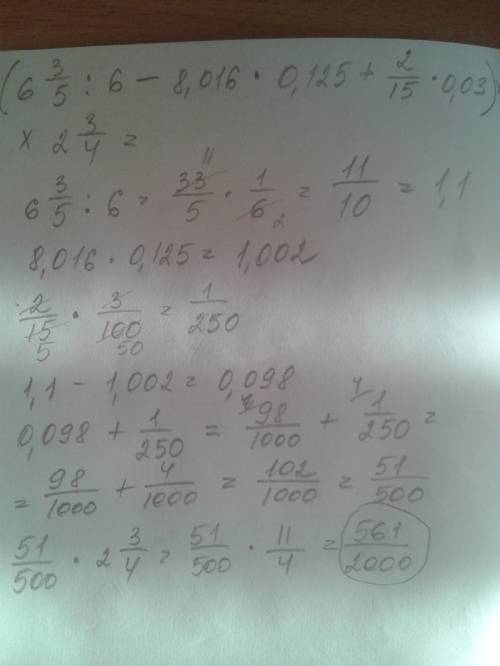 (6 3/5 : 6 − 8,016 · 0,125 + 2/15 · 0,03) ×
× 2 3/4 =
6 3/5 : 6 = 33/5 · 1/6 = 11/10 = 1,1
11 2
8,016 · 0,125 = 1,002
2/15 · 3/100 = 1/250
5 50
1,1 − 1,002 = 0,098
0,098 + 1/250 = 98/1000 + 1/250 =
= 98/1000 + 4/1000 = 102/1000 = 51/500
51/500 · 2 3/4 = 51/500 · 11/4 = 561/2000